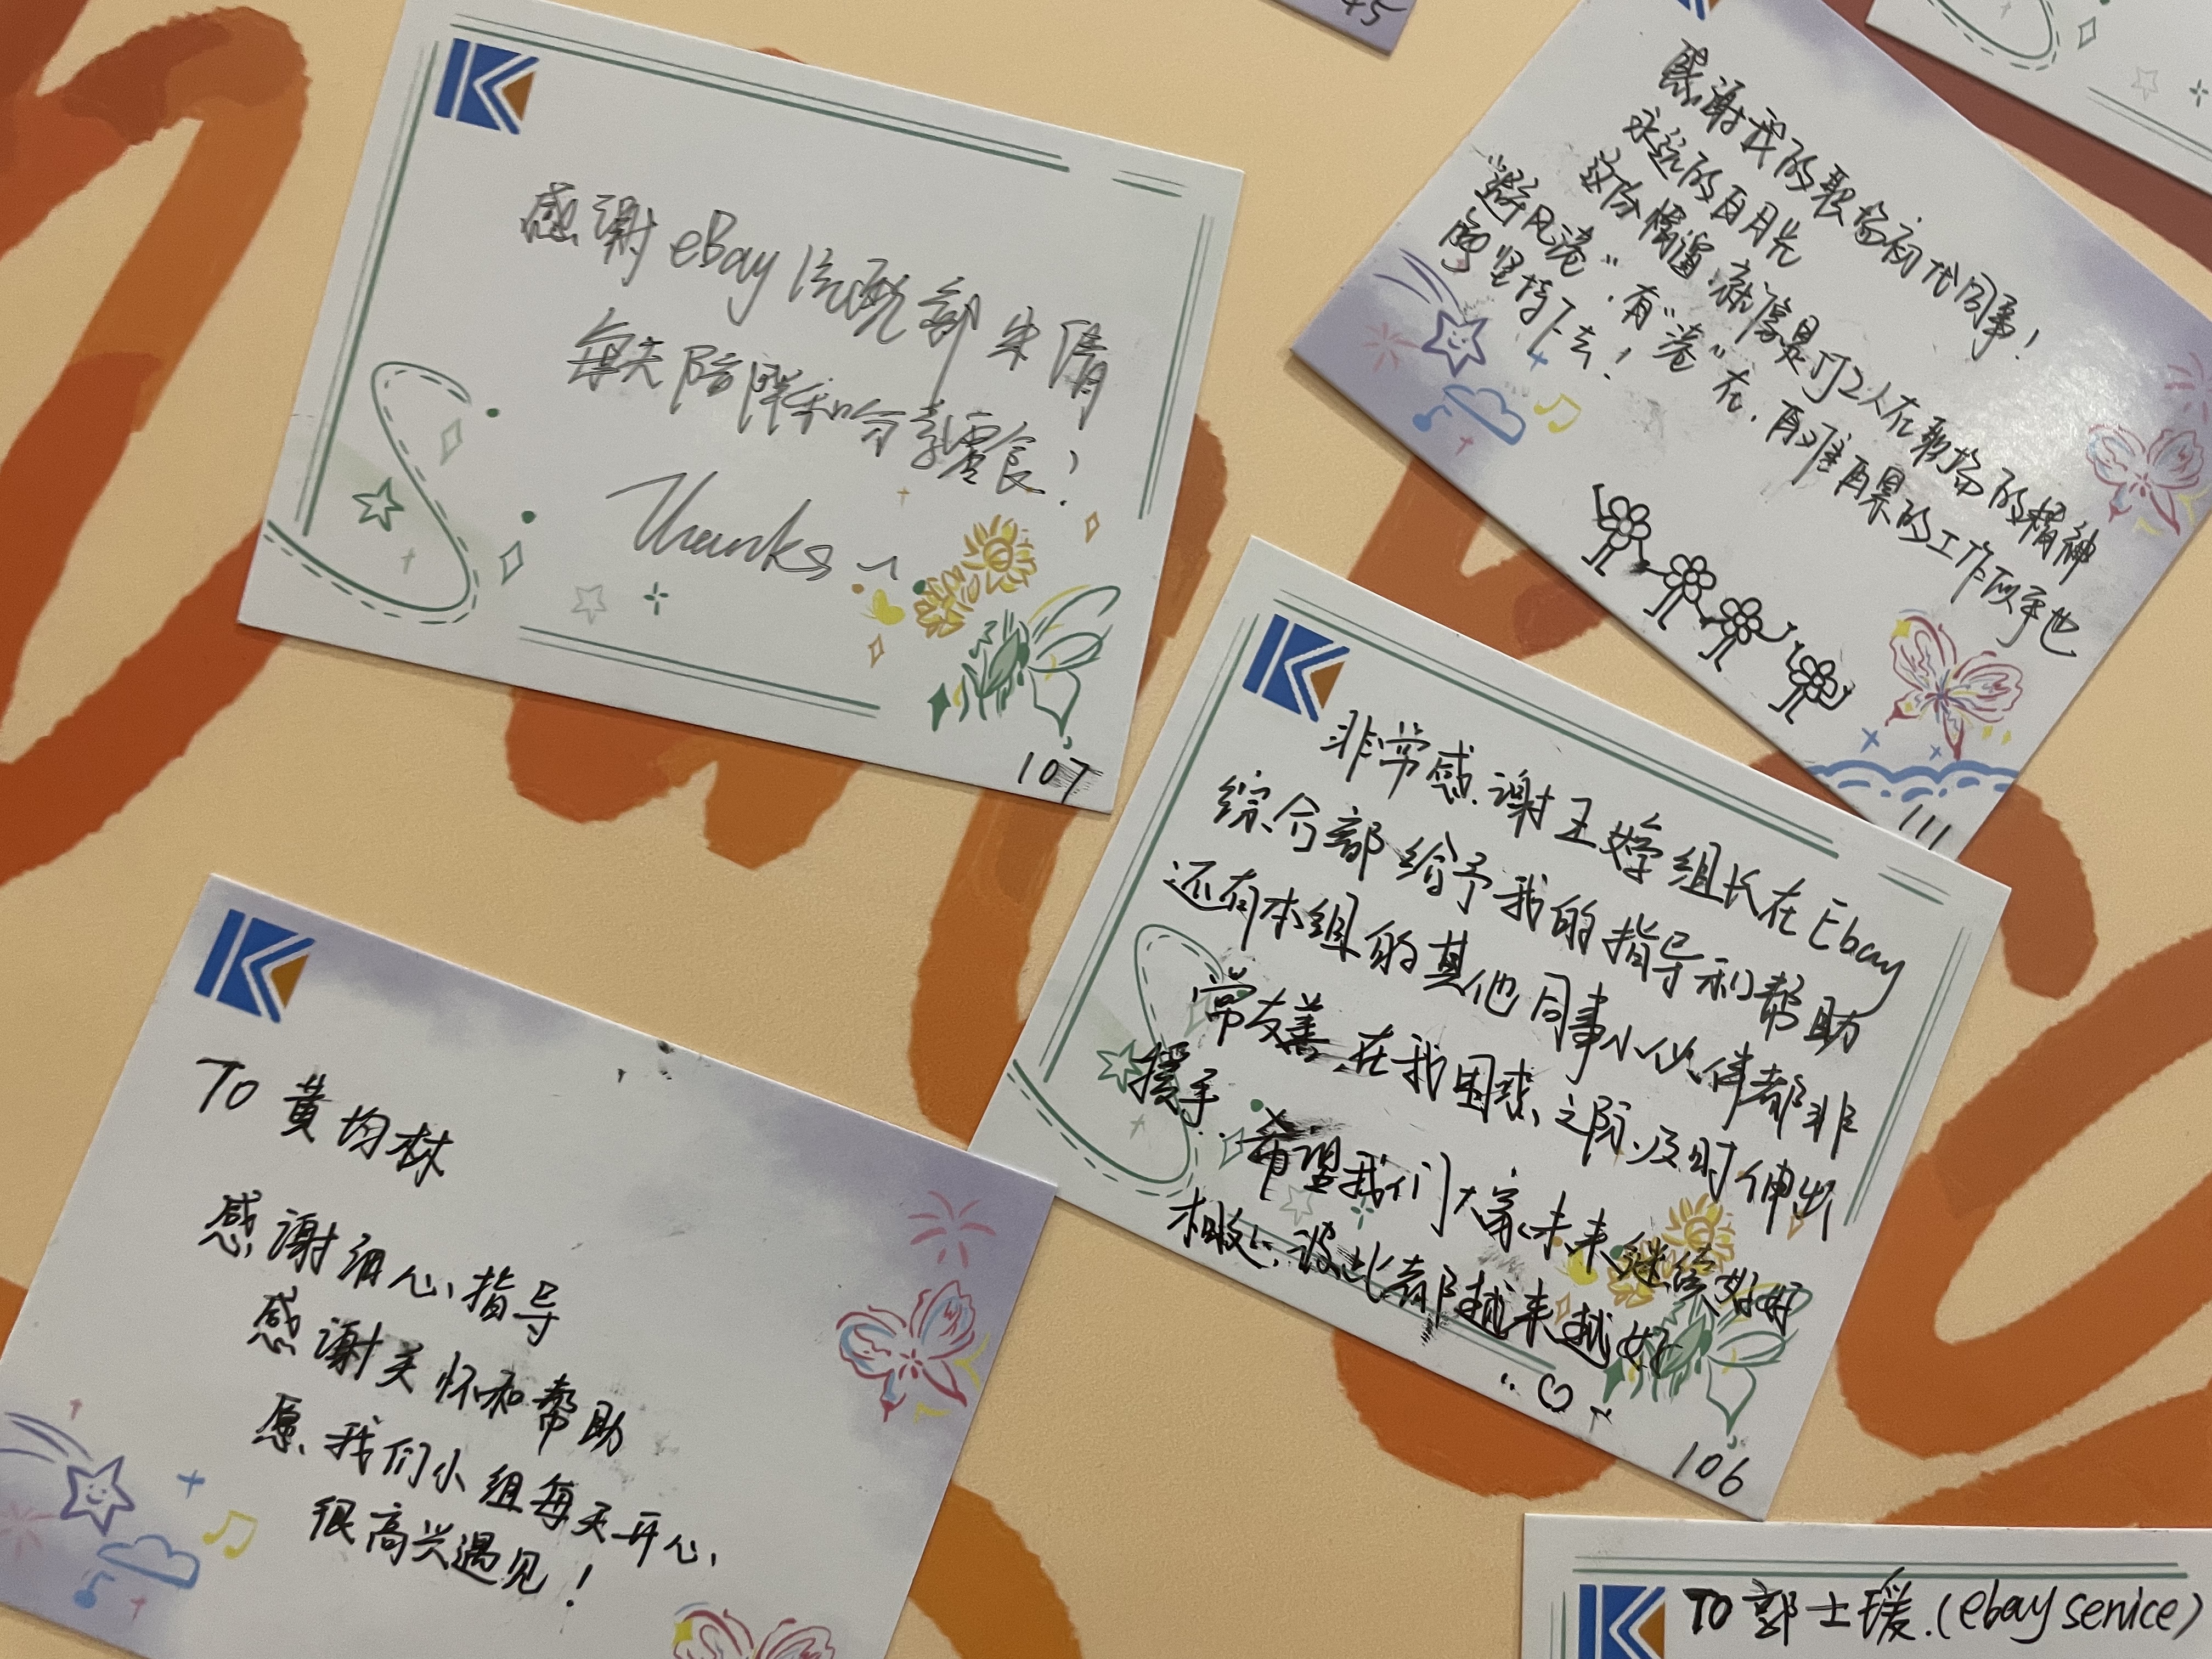 感谢 eBay 汽配部 朱倩
每天陪伴和分享零食！
Thanks ~
107
45
感谢我的职场初代同事！
永远的白月光
这份情谊，就像是打工人在职场的精神
"避风港"，有"港"在，再难再累的工作似乎也
能坚持下去！
111
非常感谢王婷组长在Ebay
综合部给予我的指导和帮助
还有本组的其他同事小伙伴都非
常友善，在我困惑之际及时伸出
援手．希望我们大家未来继续好好
相处，彼此都越来越好
106
TO 黄均林
感谢细心指导
感谢关怀和帮助
愿我们小组每天开心，
很高兴遇见！
TO 郭士瑗.(ebay senice)